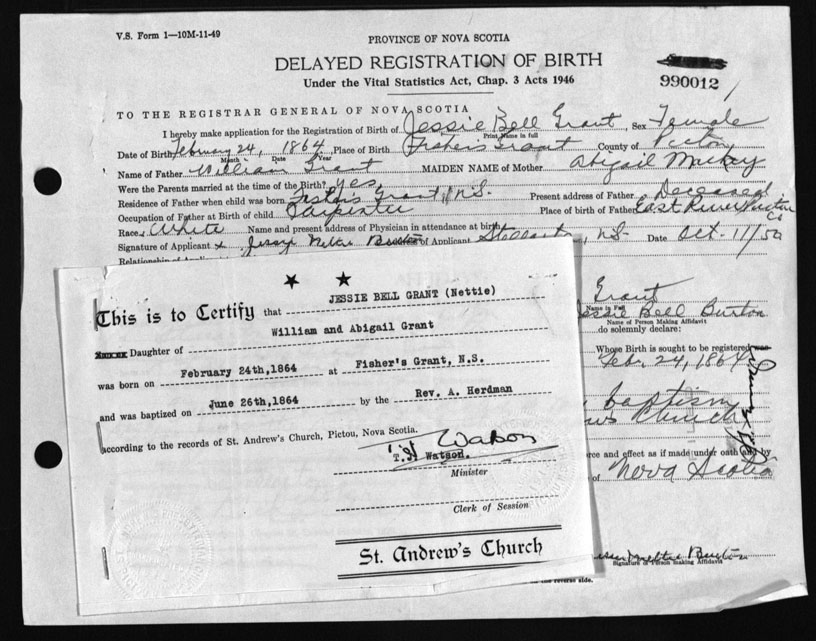 V.S. Form 1—10M-11-49
PROVINCE OF NOVA SCOTIA
DELAYED REGISTRATION OF BIRTH
Under the Vital Statistics Act, Chap. 3 Acts 1946
990012
TO THE REGISTRAR GENERAL OF NOVA SCOTIA
I hereby make application for the Registration of Birth of Jessie Bell Grant, Sex Female
Print Name in full
Date of Birth February 24, 1864, Place of Birth Fishers Grant County of Pictou
Month Date Year
Name of Father William Grant MAIDEN NAME of Mother Abigail
Were the Parents married at the time of the Birth? yes
Residence of Father when child was born Fishers Grant, N.S. Present address of Father Deceased
Occupation of Father at Birth of child Carpenter Place of birth of Father East River Pictou Co
Race White Name and present address of Physician in attendance at birth
Signature of Applicant x Jessie Nettie Burton of Applicant Stellarton, N.S. Date Oct. 11/50
Grant
Jessie Bell Burton
Name of Person Making Affidavit
do solemnly declare:
Whose Birth is sought to be registered
Feb. 24, 1864
baptism
Church
and effect as if made under oath by
of Nova Scotia
Nettie Burton
Signature of Person making Affidavit
reverse side.
This is to Certify that JESSIE BELL GRANT (Nettie)
Daughter of William and Abigail Grant
was born on February 24th,1864 at Fisher's Grant, N.S.
and was baptized on June 26th,1864 by the Rev. A. Herdman
according to the records of St. Andrew's Church, Pictou, Nova Scotia.
Watson
T. Watson.
Minister
Clerk of Session
St. Andrew's Church